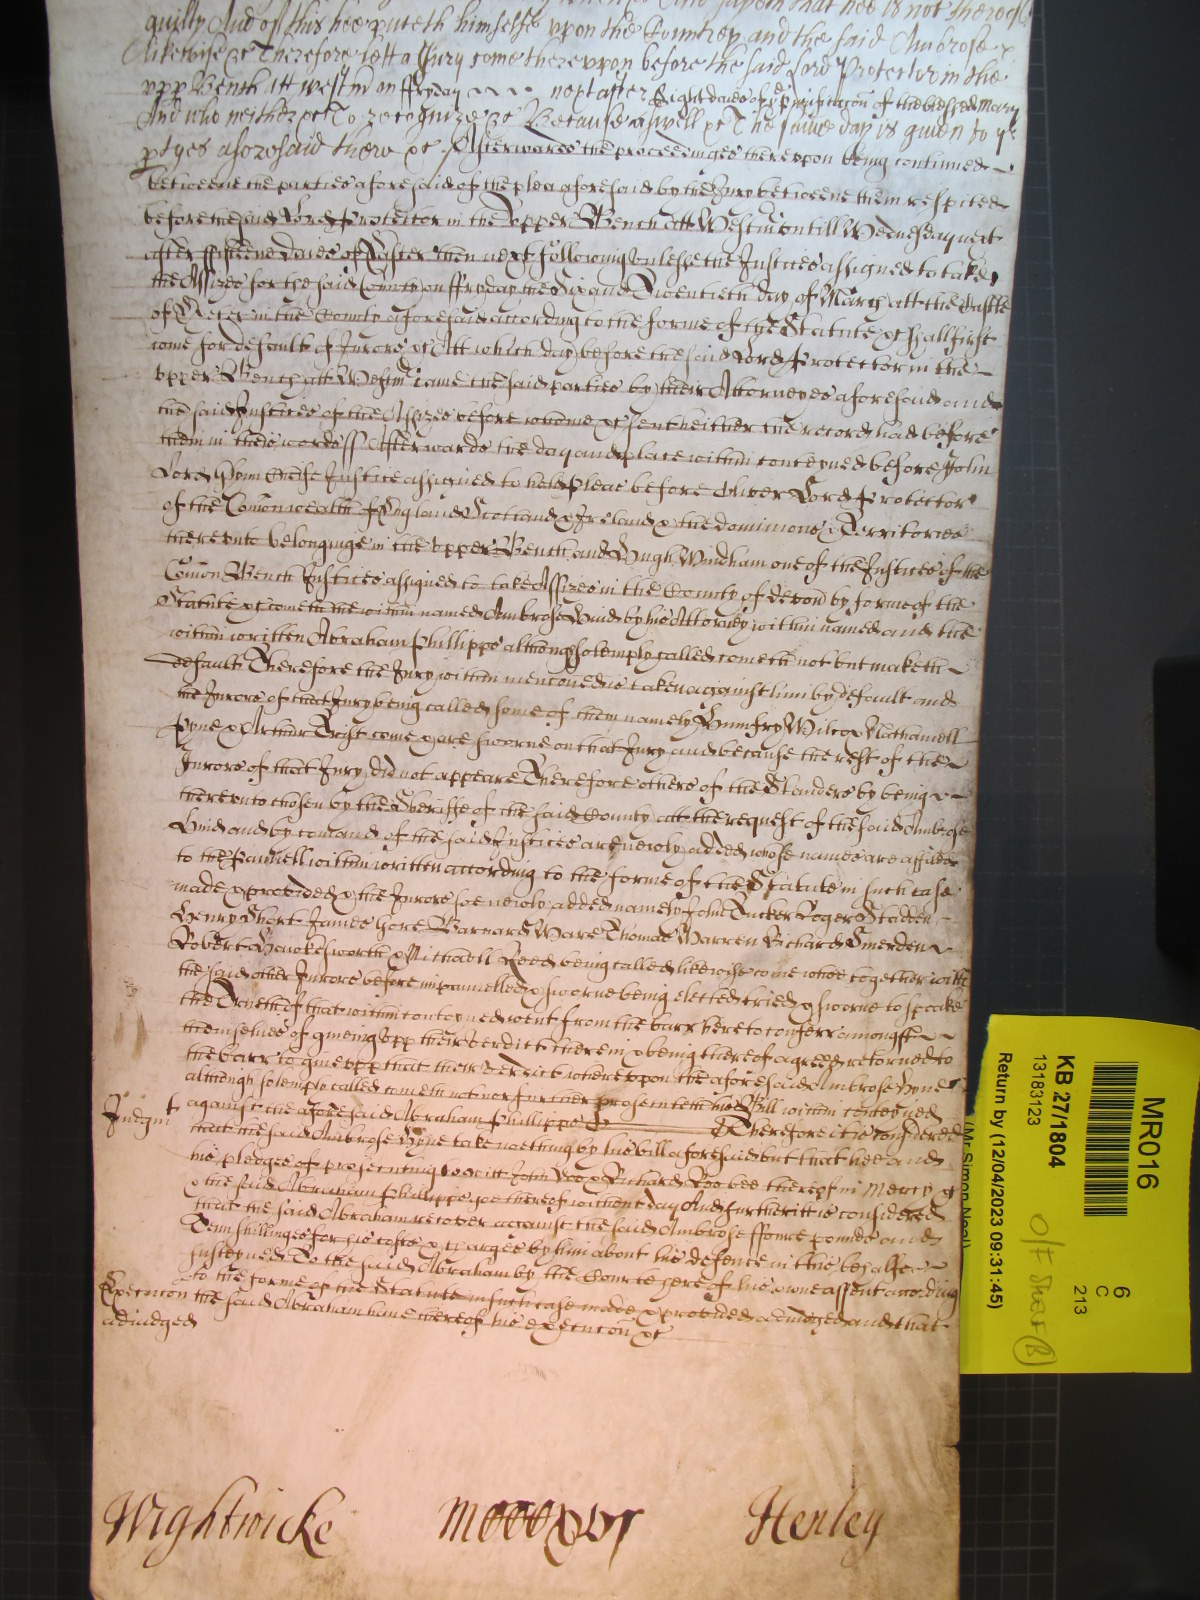 guilty And of this hee puteth himselfe vpon the Countrey and the said Ambrose
likewise &c Therefore lett a Jury come therevpon before the said Lord Protector in the
vpp Bench att westm on ffryday next after Eight daies of ye Purificacon of the blessed Mary
And who neither &c To recognize &c Because aswell &c The same day is given to ye
ptyes aforesaid there &c Afterwards the proceedinges therevpon being continued
betweene the parties aforesaid of the plea aforesaid by the Jury betweene them respited
before the said Lord Protector in the Vpper Bench att Westm vntill Wednesday next
after fifteene daies of Easter then next following vnlesse the Justices assigned to take
the Assizes for the said County on ffryday the Six and Twentieth day of March att the Castle
of Exeter in the County aforesaid according to the forme of the Statute &c shall first
come for default of Jurors &c Att which day before the said Lord Protector in the
vpper Bench att Westm came the said parties by their Attorneyes aforesaid and
the said Justices of the Assizes before whome &c sent hether the record had before
them in theis words ss Afterwards the day and place within conteyned before John
Lord Cheife Justice assigned to hold pleas before Oliver Lord Protector
of the Comonwealth of England Scotland & Ireland & the dominions & Territories
therevnto belonginge in the vpper Bench and Hugh Windham one of the Justices of the
Comon Bench Justices assigned to take Assizes in the County of devon by forme of the
Statute &c cometh the within named Ambrose by his Attorney within named and the
within written Abraham Phillipps although solemply called cometh not but maketh
default Therefore the Jury within menconed is taken against him by default and
the Jurors of that Jury being called some of them namely Humfry Wilcox Nathaniell
Pyne & Arthur Trist come & are sworne on that Jury and because the rest of the
Jurors of that Jury did not appeare Therefore others of the Standers by being
therevnto chosen by the Sheriffe of the said County att the request of the said Ambrose
and by comand of the said Justices are newly added whose names are affiled
to the Pannell within written according to the forme of the Statute in such case
made & provided & the Jurors soe newly added namely John Tucker Roger Stadden
Henry Short James Gore Barnard Ware Thomas Warren Richard Smerden
Robert Hawkesworth & Michaell Reed being called likewise come whoe together with
the said other Jurors before impannelled & sworne being elected tried & sworne to speake
the Trueth of that within conteyned went from the barr here to conferr amongst
themselues of giueing vpp their verdict therein & being thereof agreed returned to
the barr to giue vpp that their verdict wherevpon the aforesaid Ambrose
although solemply called cometh not nor further prosecuteth his Bill within conteyned
against the aforesaid Abraham Phillipps Therefore it is considered
Judgmt that the said Ambrose take noething by his bill aforesaid but that hee and
his pledges of prosecuting to witt John Doo & Richard Roo bee thereof in Mercy &c
& the said Abraham Phillipps goe thereof without day And further itt is considered
that the said Abraham recover against the said Ambrose ffoure pounds and
Tenn shillinges for his costs & charges by him about his defence in this behalfe
susteyned To the said Abraham by the Courte here of his owne assent according
to the forme of the Statute in such case made & provided adiudged and that
Execucon the said Abraham haue thereof his execucon &c
adiudged
Wightwicke Henley
MR016
KB 27/1804
13183123
Return by (12/04/2023 09:31:45)
(Mr Simon Neal)
6
C
213